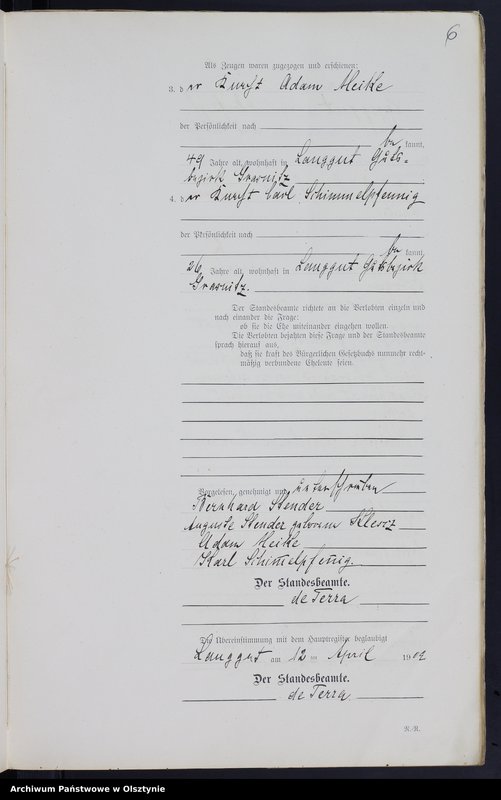 6
Als Zeugen waren zugezogen und erschienen:
3. der Knecht Adam Heike
der Persönlichkeit nach
be kannt,
49 Jahre alt, wohnhaft in Langgut Guts-
bezirk Grasnitz
4. der Knecht Carl Schimmelpfennig
der Persönlichkeit nach
be kannt,
26 Jahre alt, wohnhaft in Langgut Gutsbezirk
Grasnitz.
Der Standesbeamte richtete an die Verlobten einzeln und
nach einander die Frage:
ob sie die Ehe miteinander eingehen wollen.
Die Verlobten bejahten diese Frage und der Standesbeamte
sprach hierauf aus,
daß sie kraft des Bürgerlichen Gesetzbuchs nunmehr recht-
mäßig verbundene Eheleute seien.
Vorgelesen, genehmigt und unterschrieben
Bernhard Stender
Auguste Stender geborene
Adam Heike
Karl Schimmelpfennig.
Der Standesbeamte.
de Terra
Die Übereinstimmung mit dem Hauptregister beglaubigt
Langgut am 12 ten April 1909
Der Standesbeamte.
de Terra
Archiwum Państwowe w Olsztynie